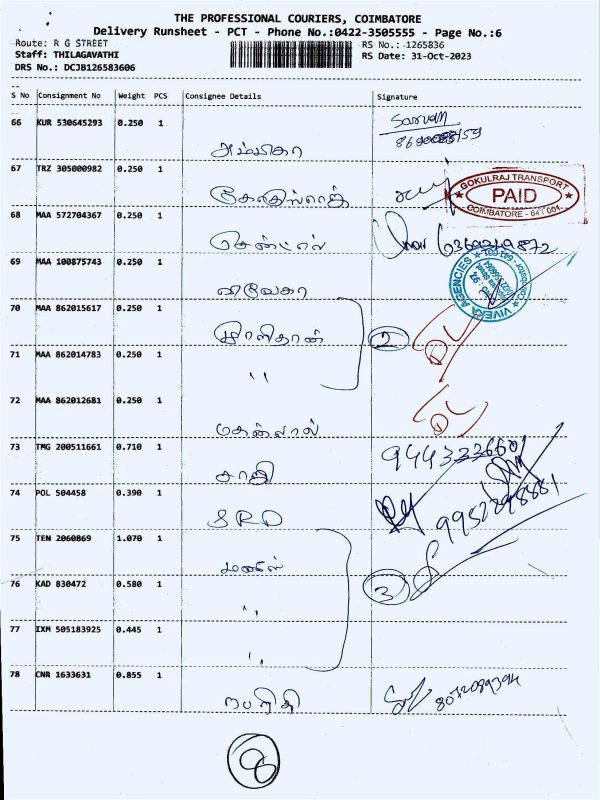 THE PROFESSIONAL COURIERS, COIMBATORE
Delivery Runsheet - PCT - Phone No.:0422-3505555 - Page No.:6
Route: R G STREET RS No.: 1265836
Staff: THILAGAVATHI RS Date: 31-Oct-2023
DRS No.: DCJB126583606
S No Consignment No Weight PCS Consignee Details Signature
66 KUR 530645293 0.250 1 Sarvam
அம்பிகா
67 TRZ 305000982 0.250 1
GOKULRAJ TRANSPORT
PAID
COIMBATORE - 641 001
68 MAA 572704367 0.250 1
சென்ட்ரல்
69 MAA 100875743 0.250 1
விவேகா
VIVEKA AGENCIES
70 MAA 862015617 0.250 1
2 DC
71 MAA 862014783 0.250 1
"
72 MAA 862012681 0.250 1 DC
மகன்லால்
73 TMG 200511661 0.710 1
74 POL 504458 0.390 1
SRD
75 TEN 2060869 1.070 1
76 KAD 830472 0.580 1 3
"
77 IXM 505183925 0.445 1
"
78 CNR 1633631 0.855 1
8